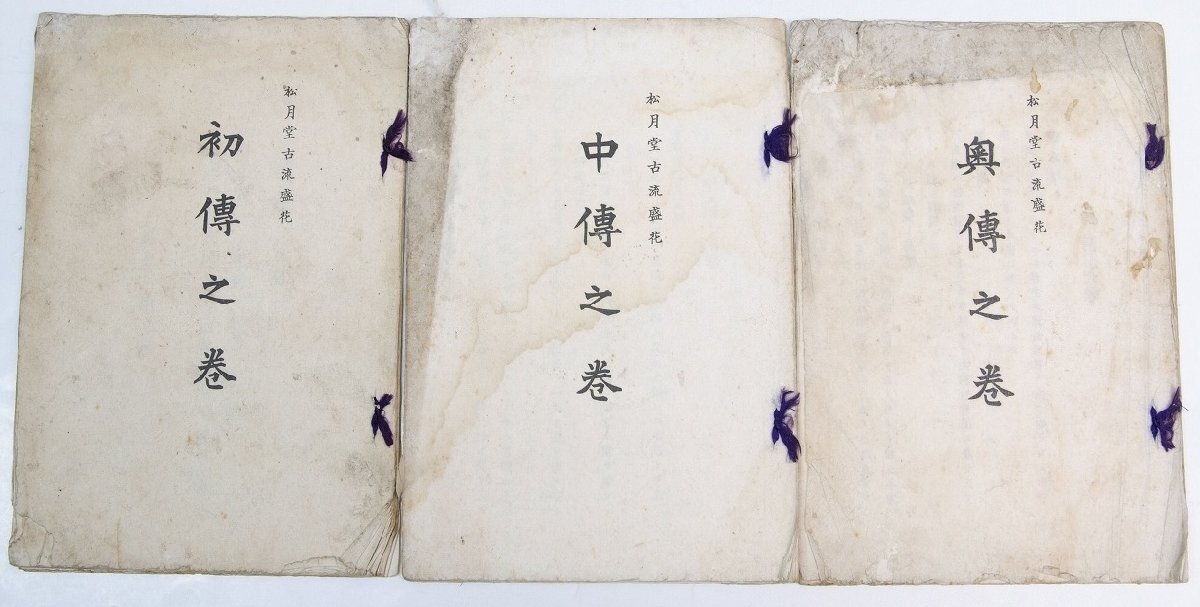 松月堂古流盛花
初傳之卷
松月堂古流盛花
中傳之卷
松月堂古流盛花
奥傳之卷